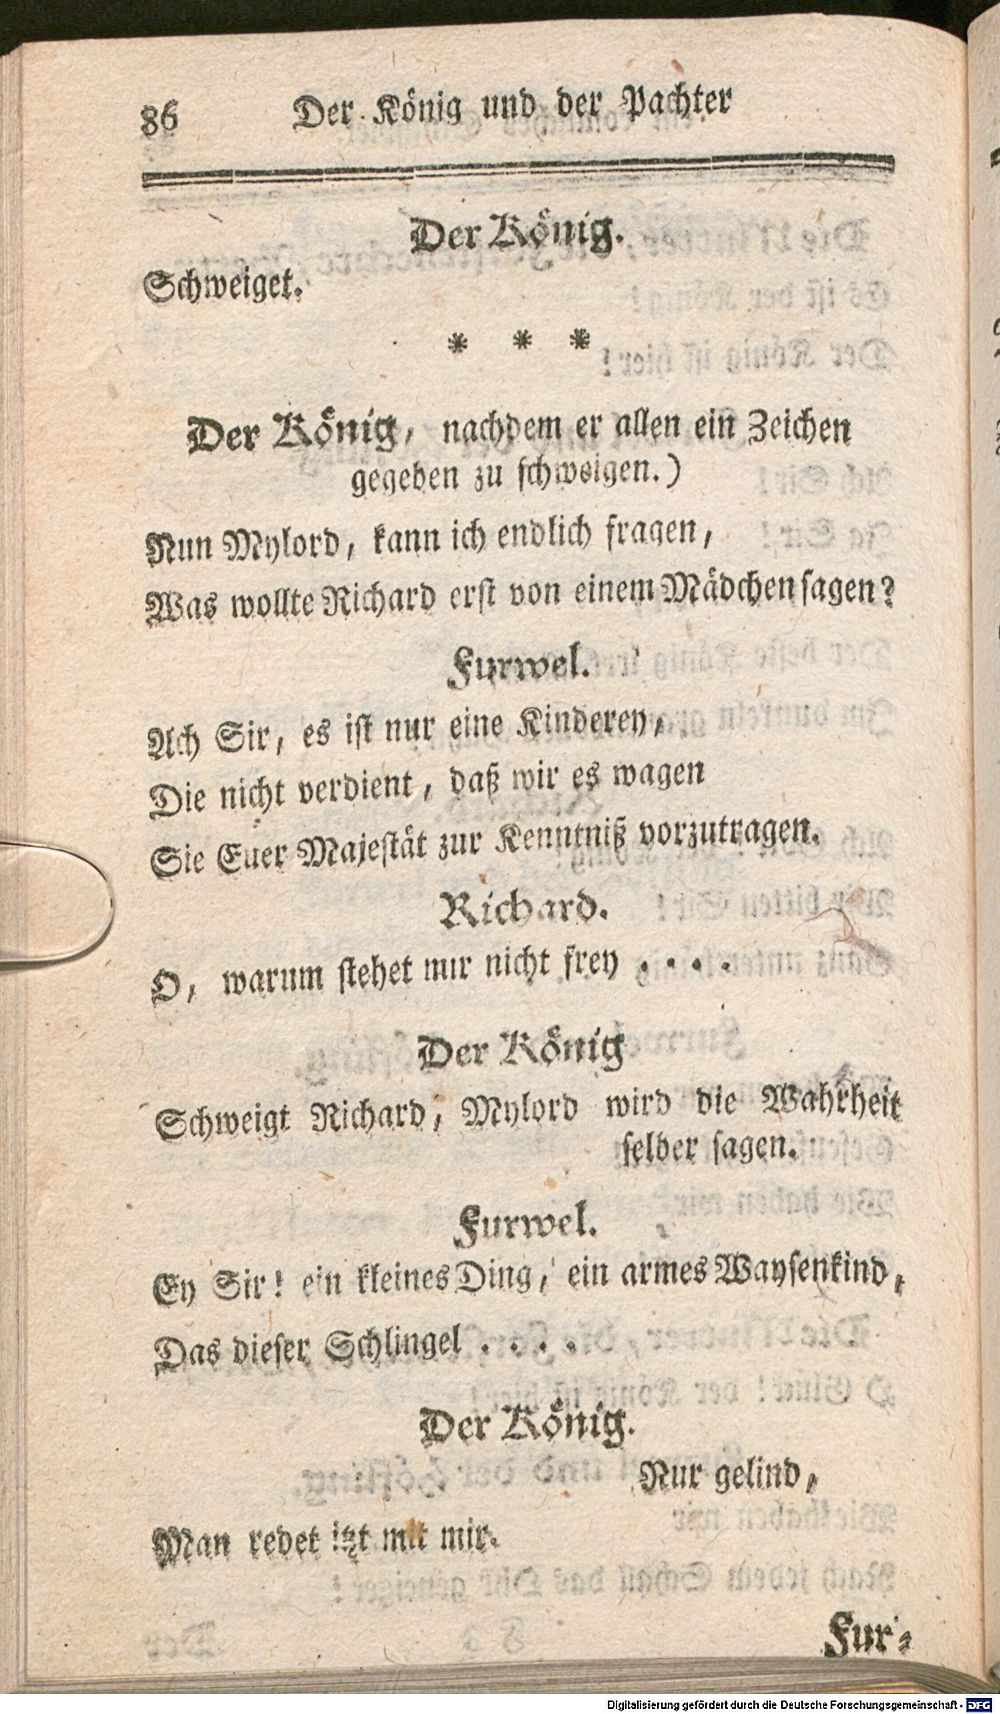 86 Der König und der Pachter
Der König.
Schweiget.
* * *
Der König, nachdem er allen ein Zeichen
gegeben zu schweigen.)
Nun Mylord, kann ich endlich fragen,
Was wollte Richard erst von einem Mädchen sagen?
Furwel.
Ach Sir, es ist nur eine Kinderey,
Die nicht verdient, daß wir es wagen
Sie Euer Majestät zur Kenntniß vorzutragen.
Richard.
O, warum stehet mir nicht frey . . . .
Der König
Schweigt Richard, Mylord wird die Wahrheit
selber sagen.
Furwel.
Ey Sir! ein kleines Ding, ein armes Waysenkind,
Das dieser Schlingel . . . .
Der König.
Nur gelind,
Man redet itzt mit mir.
Fur-
Digitalisierung gefördert durch die Deutsche Forschungsgemeinschaft - DFG